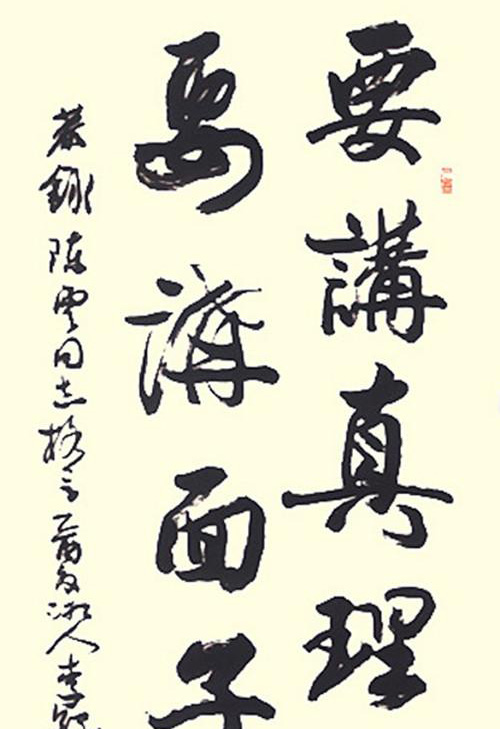 要講真理
要講面子
恭錄陳雲同志格言人李